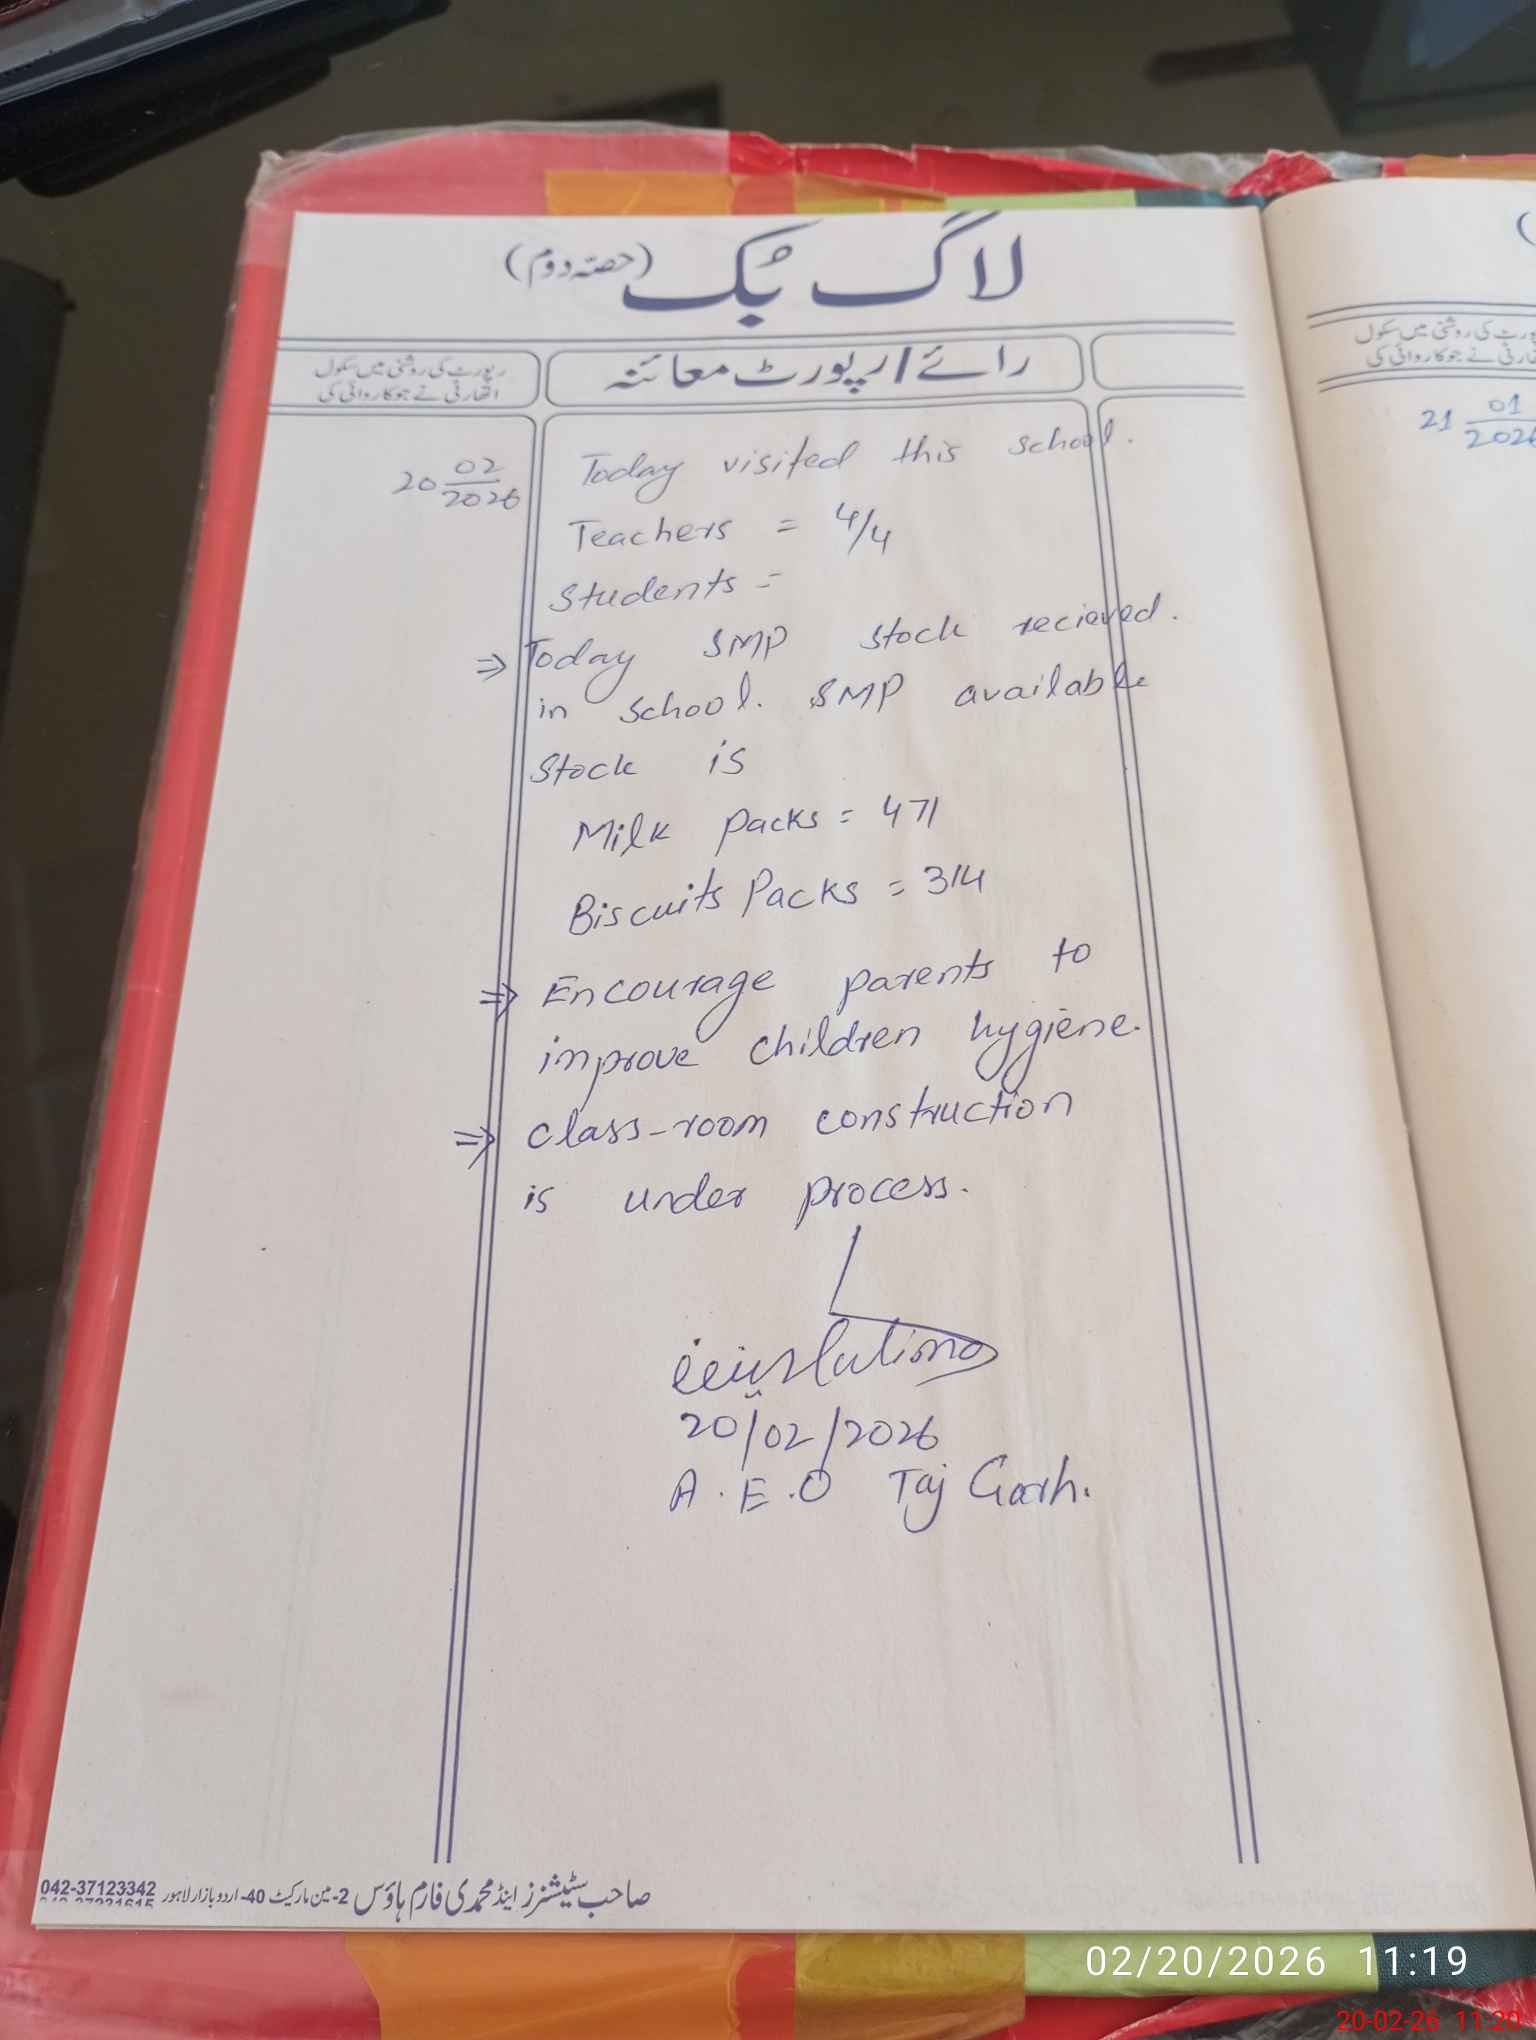 لاگ بُک (حصّہ دوم)
رپورٹ کی روشنی میں سکول
اتھارٹی نے جو کاروائی کی
رائے / رپورٹ معائنہ
20 02/2026
Today visited this school.
Teachers = 4/4
Students =
⇒ Today SMP stock recieved.
in school. SMP available
stock is
Milk Packs = 471
Biscuits Packs = 314
⇒ Encourage parents to
improve children hygiene.
⇒ class-room construction
is under process.
20/02/2026
A.E.O Taj Garh.
صاحب سٹیشنرز اینڈ محمدی فارم ہاؤس 2-مین مارکیٹ 40-اردو بازار لاہور 042-37123342
21 01/2026
02/20/2026 11:19
20-02-26 11:20